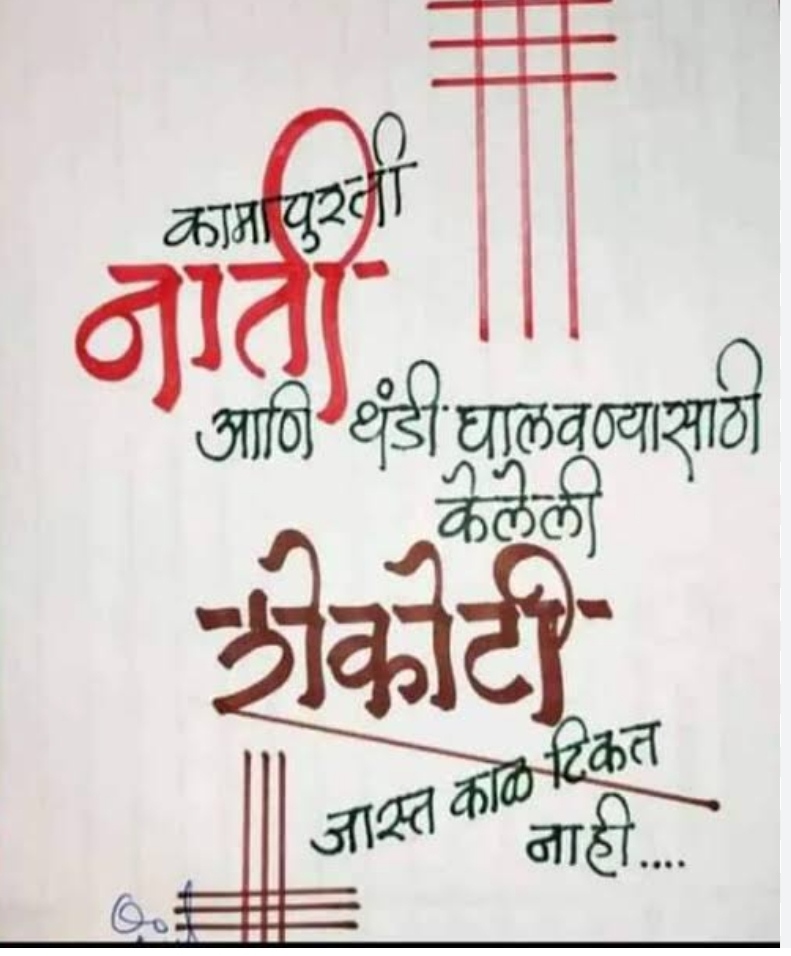 कामापुरती
नाती
आणि थंडी घालवण्यासाठी
केलेली
शेकोटी
जास्त काळ टिकत
नाही....